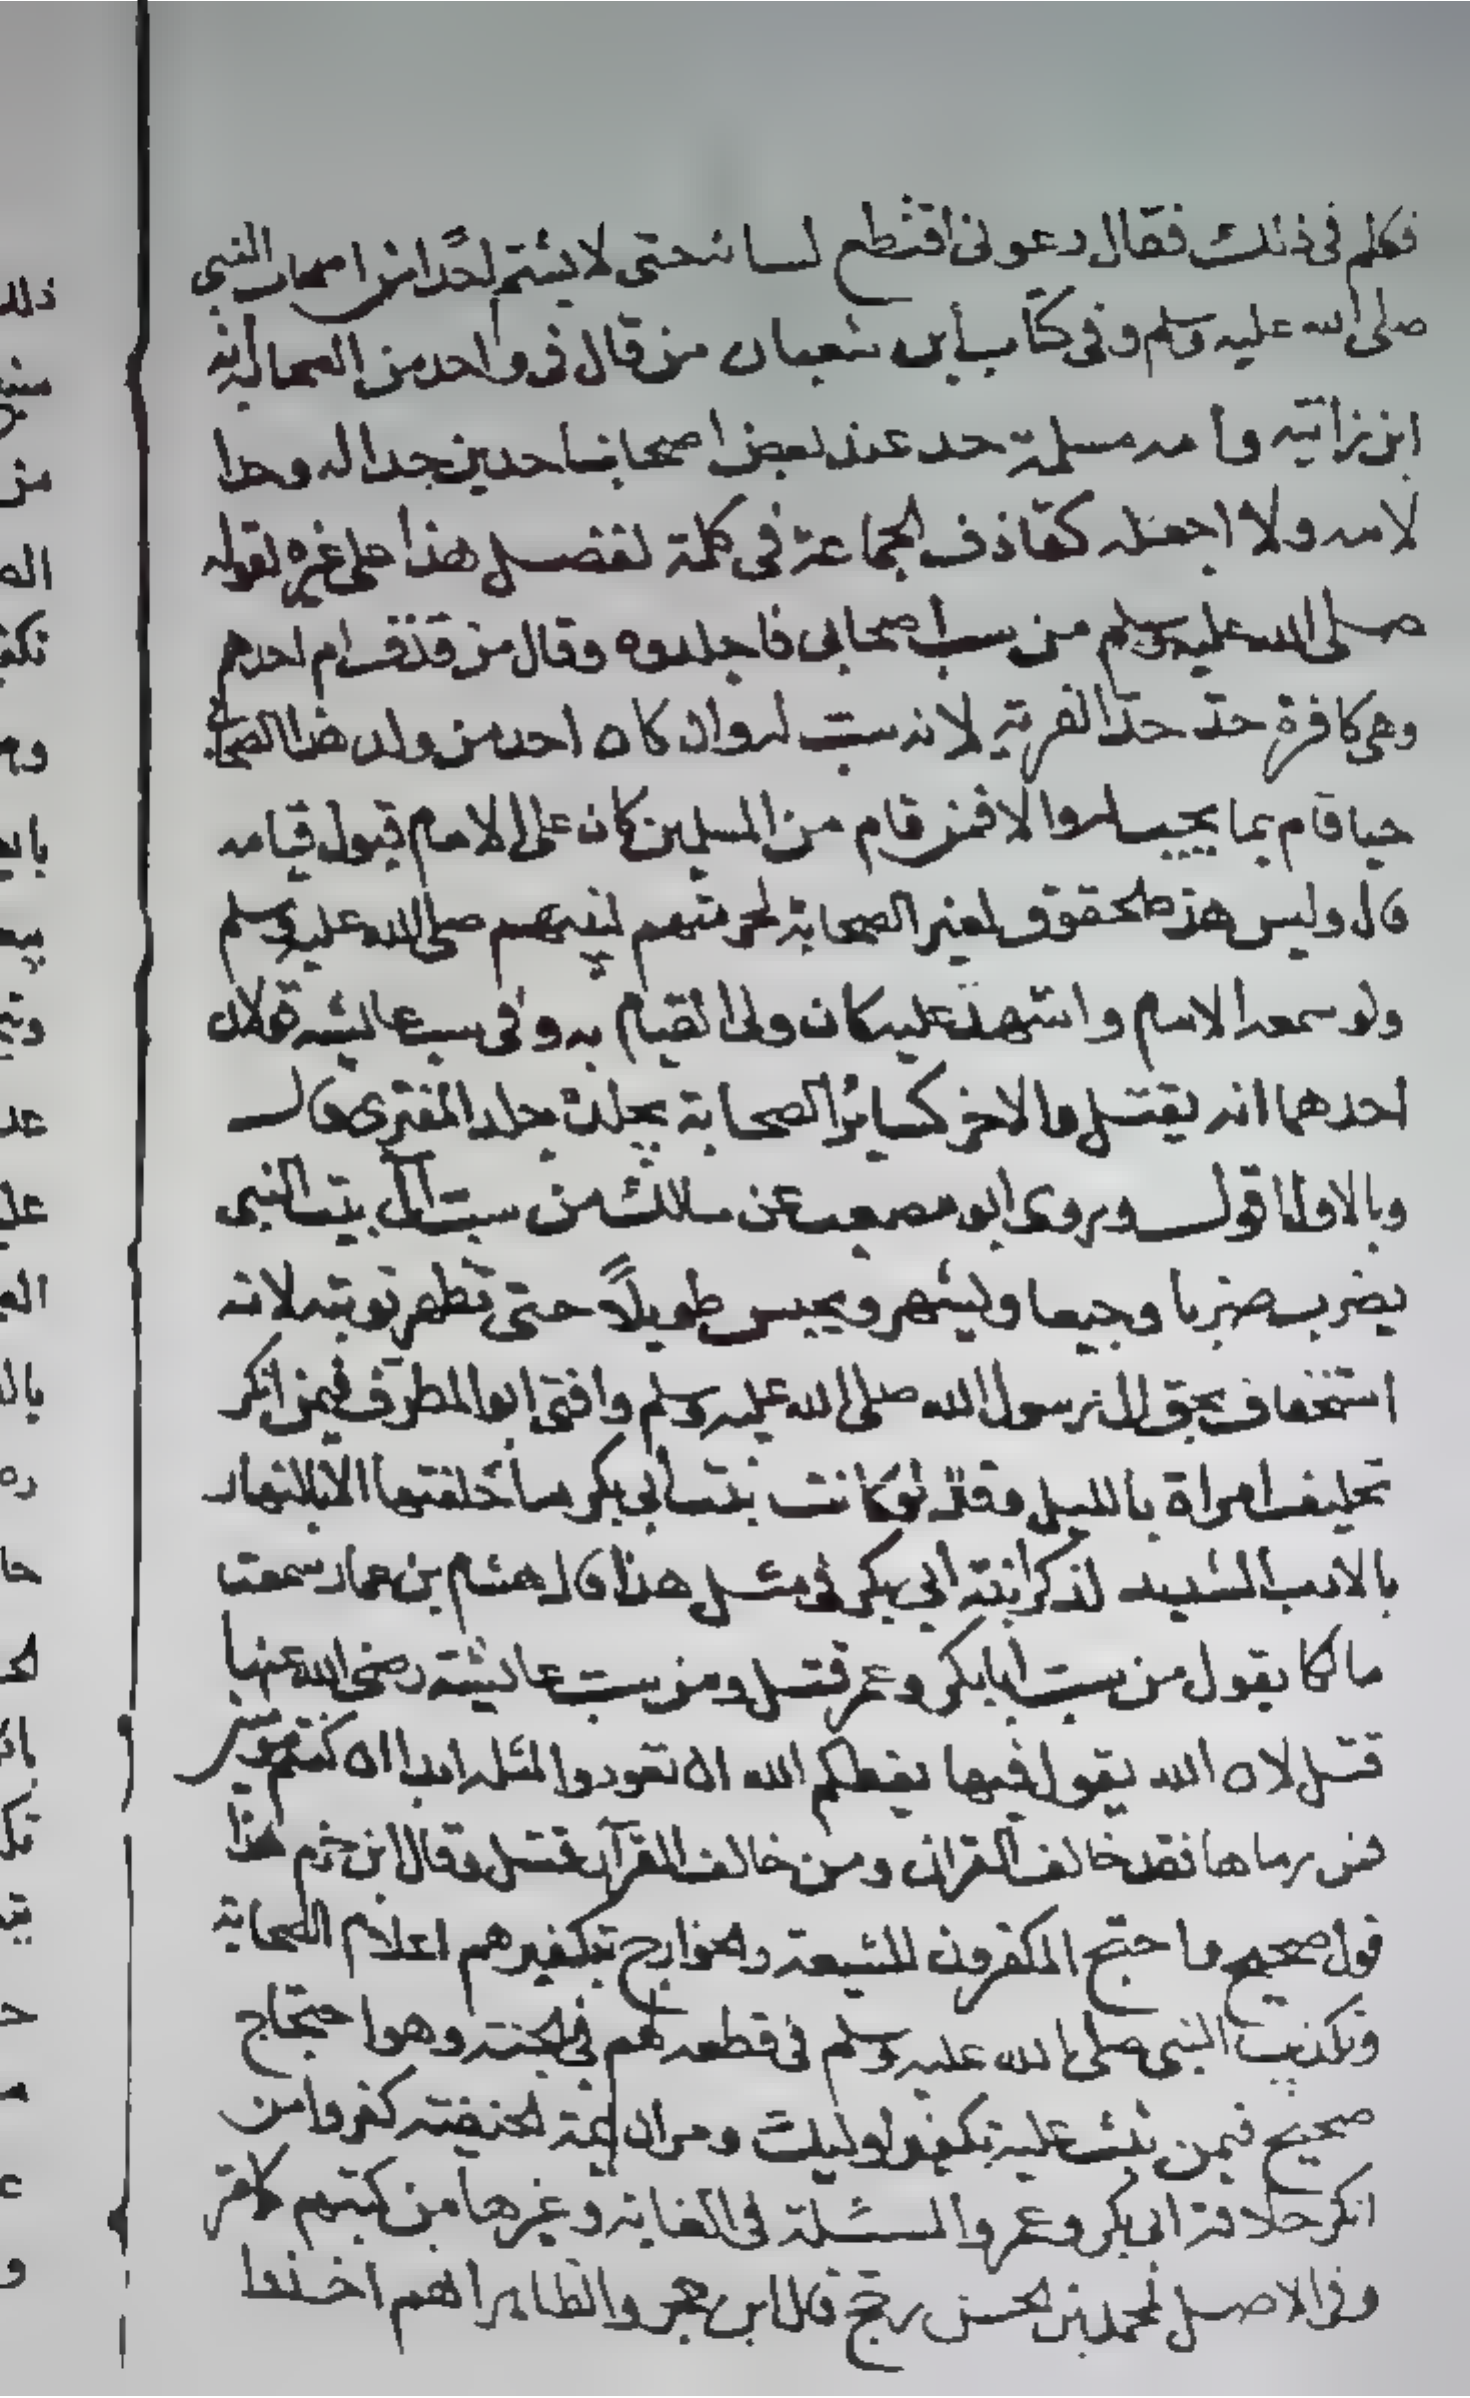 فكلم في ذلك فقال دعوني اقتطع لسانه حتى لا يشتم احدا من اصحاب النبي
صلى الله عليه وسلم وفي كتاب ابن شعبان من قال في واحد من الصحابة انه
ابن زانية وامه مسلمة حد عند بعض اصحابنا حدين حدا له وحدا
لامه ولا اجعله كقاذف الجماعة في كلمة لفضل هذا على غيره لقوله
صلى الله عليه وسلم من سب اصحابي فاجلدوه وقال من قذف ام احدهم
وهي كافرة حد حد الفرية لانه سب له وان كان احد من ولد هذا الصحابي
حيا قام بما يجب له والا فمن قام من المسلمين كان على الامام قبول قيامه
قال وليس هذا كحقوق لغير الصحابة لحرمتهم لنبيهم صلى الله عليه وسلم
ولو سمعه الامام واشهد عليه كان ولي القيام به وفي سب عائشة قولان
احدهما انه يقتل والاخر كسائر الصحابة يجلد جلد المفتري قال
وبالاول اقول وروى ابو مصعب عن مالك من سب آل بيت النبي
يضرب ضربا وجيعا ويشهر ويحبس طويلاً حتى تظهر توبته لانه
استخفاف بحق الرسول الله صلى الله عليه وسلم وافتى ابو المطرف فيمن انكر
تحليف امراة بالليل وقال لو كانت بنت ابي بكر ما حلفتها الا بالنهار
بالادب الشديد لذكر ابنة ابي بكر في مثل هذا قال هشام بن عمار سمعت
مالكا يقول من سب ابا بكر وعمر قتل ومن سب عائشة رضي الله عنها
قتل لان الله يقول فيها يعظكم الله ان تعودوا لمثله ابدا ان كنتم مومنين
فمن رماها فقد خالف القران ومن خالف القرآن قتل وقال ابن حزم هذا
قول صحيح واحتج المكفرون للشيعة والخوارج بتكفيرهم اعلام الصحابة
وتكذيب النبي صلى الله عليه وسلم في قطعه لهم في الجنة وهو احتجاج
صحيح فيمن ثبت عليه تكفير اوليك ومر ان ايمة الحنفية كفروا من
انكر خلافة ابي بكر وعمر والمسئلة في الغاية وغيرها من كتبهم كما مر
وفي الاصل لمحمد بن الحسن رح قال ابن حجر والظاهر انهم اخذوا